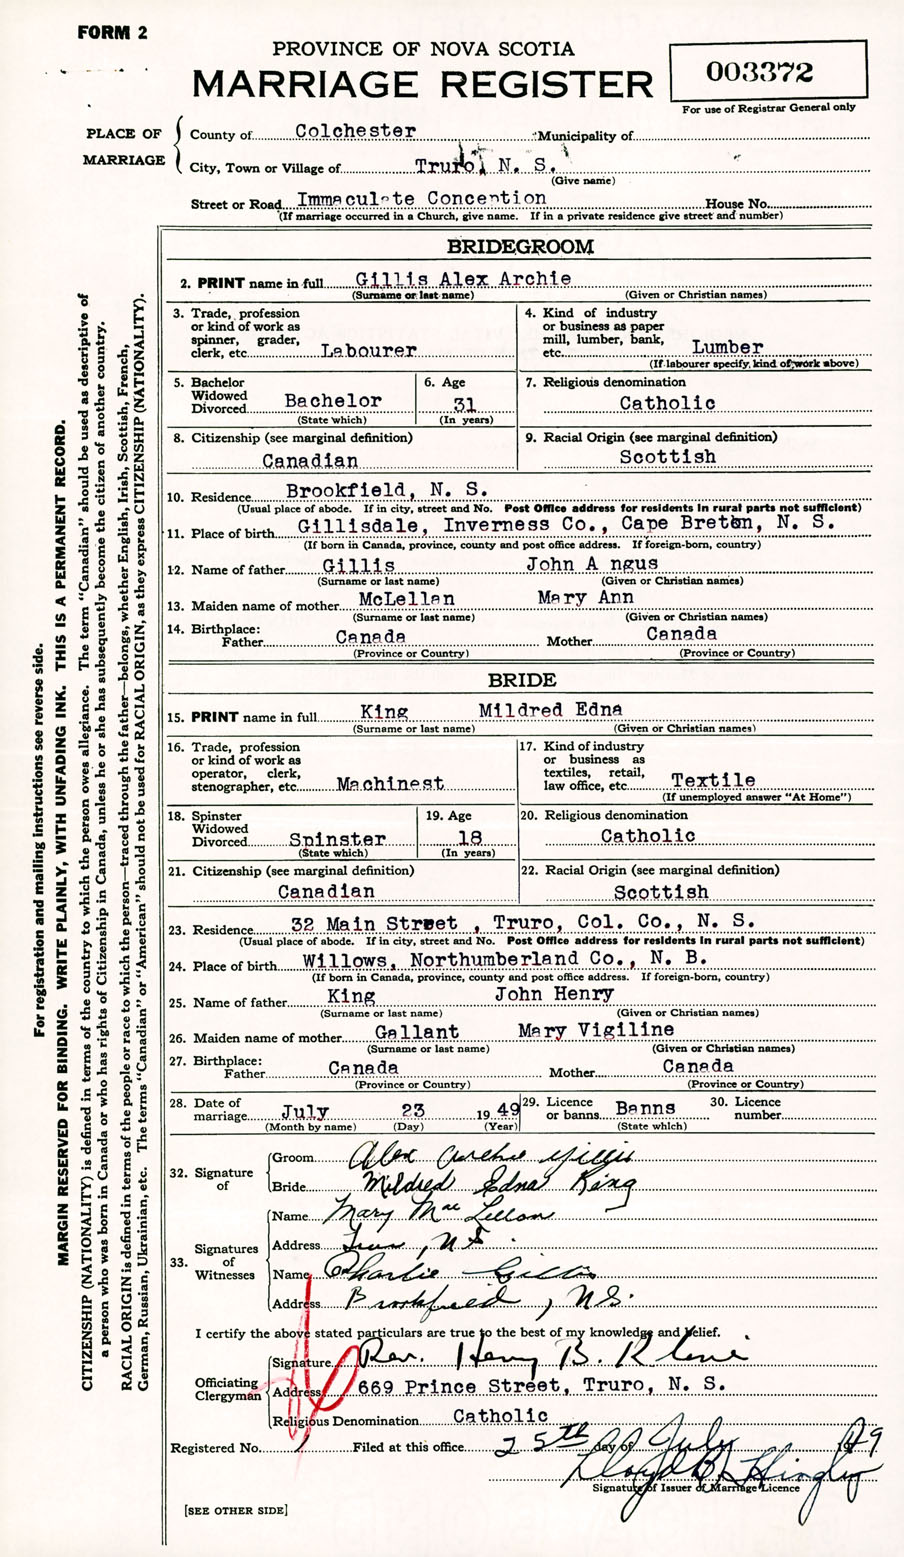 FORM 2
PROVINCE OF NOVA SCOTIA
MARRIAGE REGISTER
003372
For use of Registrar General only
PLACE OF MARRIAGE
County of Colchester Municipality of
City, Town or Village of Truro, N. S.
(Give name)
Street or Road Immaculate Conception House No.
(If marriage occurred in a Church, give name. If in a private residence give street and number)
BRIDEGROOM
2. PRINT name in full Gillis Alex Archie
(Surname or last name) (Given or Christian names)
3. Trade, profession
or kind of work as
spinner, grader,
clerk, etc. Labourer
4. Kind of industry
or business as paper
mill, lumber, bank,
etc. Lumber
(If labourer specify, kind of work above)
5. Bachelor
Widowed
Divorced Bachelor
(State which)
6. Age
31
(In years)
7. Religious denomination
Catholic
8. Citizenship (see marginal definition)
Canadian
9. Racial Origin (see marginal definition)
Scottish
10. Residence Brookfield, N. S.
(Usual place of abode. If in city, street and No. Post Office address for residents in rural parts not sufficient)
11. Place of birth Gillisdale, Inverness Co., Cape Breton, N. S.
(If born in Canada, province, county and post office address. If foreign-born, country)
12. Name of father Gillis John A ngus
(Surname or last name) (Given or Christian names)
13. Maiden name of mother McLellan Mary Ann
(Surname or last name) (Given or Christian names)
14. Birthplace:
Father Canada Mother Canada
(Province or Country) (Province or Country)
BRIDE
15. PRINT name in full King Mildred Edna
(Surname or last name) (Given or Christian names)
16. Trade, profession
or kind of work as
operator, clerk,
stenographer, etc. Machinest
17. Kind of industry
or business as
textiles, retail,
law office, etc. Textile
(If unemployed answer "At Home")
18. Spinster
Widowed
Divorced Spinster
(State which)
19. Age
18
(In years)
20. Religious denomination
Catholic
21. Citizenship (see marginal definition)
Canadian
22. Racial Origin (see marginal definition)
Scottish
23. Residence 32 Main Street , Truro, Col. Co., N. S.
(Usual place of abode. If in city, street and No. Post Office address for residents in rural parts not sufficient)
24. Place of birth Willows, Northumberland Co., N. B.
(If born in Canada, province, county and post office address. If foreign-born, country)
25. Name of father King John Henry
(Surname or last name) (Given or Christian names)
26. Maiden name of mother Gallant Mary Vigiline
(Surname or last name) (Given or Christian names)
27. Birthplace:
Father Canada Mother Canada
(Province or Country) (Province or Country)
28. Date of
marriage July 23 1949
(Month by name) (Day) (Year)
29. Licence
or banns Banns
(State which)
30. Licence
number
32. Signature
of
Groom Alex Archie Gillis
Bride Mildred Edna King
33. Signatures
of
Witnesses
Name Mary MacLellan
Address Truro, N.S.
Name Charlie Gillis
Address Brookfield, N.S.
I certify the above stated particulars are true to the best of my knowledge and belief.
Officiating
Clergyman
Signature Rev. Henry B.
Address 669 Prince Street, Truro, N. S.
Religious Denomination Catholic
Registered No. Filed at this office 25th day of July 1949
Lloyd
Signature of Issuer of Marriage Licence
[SEE OTHER SIDE]
For registration and mailing instructions see reverse side.
MARGIN RESERVED FOR BINDING. WRITE PLAINLY, WITH UNFADING INK. THIS IS A PERMANENT RECORD.
CITIZENSHIP (NATIONALITY) is defined in terms of the country to which the person owes allegiance. The term "Canadian" should be used as descriptive of
a person who was born in Canada or who has rights of Citizenship in Canada, unless he or she has subsequently become the citizen of another country.
RACIAL ORIGIN is defined in terms of the people or race to which the person—traced through the father—belongs, whether English, Irish, Scottish, French,
German, Russian, Ukrainian, etc. The terms "Canadian" or "American" should not be used for RACIAL ORIGIN, as they express CITIZENSHIP (NATIONALITY).